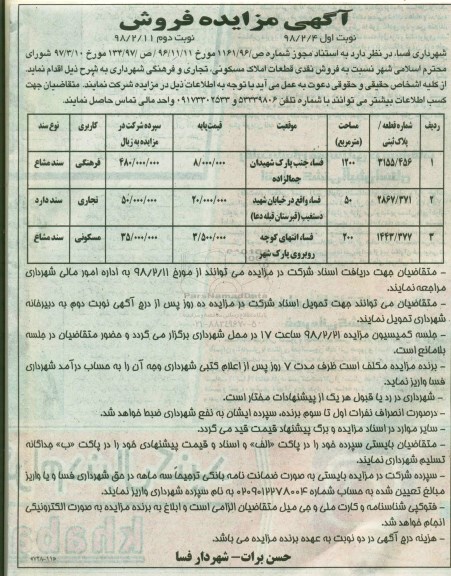 آگهی مزایده فروش
نوبت اول ۹۸/۲/۴ نوبت دوم ۹۸/۲/۱۱
شهرداری فسا، در نظر دارد به استناد مجوز شماره ص/۱۱۶۱/۹۶ مورخ ۹۶/۱۱/۱۱ و ص/۱۳۴/۹۷ مورخ ۹۷/۳/۱۰ شورای
محترم اسلامی شهر نسبت به فروش نقدی قطعات املاک مسکونی، تجاری و فرهنگی شهرداری به شرح ذیل اقدام نماید.
از کلیه اشخاص حقیقی و حقوقی دعوت به عمل می آید با توجه به اطلاعات ذیل در مزایده شرکت نمایند. متقاضیان جهت
کسب اطلاعات بیشتر می توانند با شماره تلفن ۵۳۳۳۹۸۰۶ و ۰۹۱۷۳۳۰۲۵۳۳ واحد مالی تماس حاصل نمایند.
ردیف شماره قطعه / پلاک ثبتی مساحت (مترمربع) موقعیت قیمت پایه سپرده شرکت در مزایده به ریال کاربری نوع سند
۱ ۳۱۵۵/۴۵۶ ۱۲۰۰ فسا، جنب پارک شهیدان جمالزاده ۸/۰۰۰/۰۰۰ ۴۸۰/۰۰۰/۰۰۰ فرهنگی سند مشاع
۲ ۲۸۶۷/۳۷۱ ۵۰ فسا، واقع در خیابان شهید دستغیب (قبرستان قبله دعا) ۲۰/۰۰۰/۰۰۰ ۵۰/۰۰۰/۰۰۰ تجاری سند دارد
۳ ۱۴۴۳/۳۷۷ ۲۰۰ فسا، انتهای کوچه روبروی پارک شهر ۳/۵۰۰/۰۰۰ ۳۵/۰۰۰/۰۰۰ مسکونی سند مشاع
- متقاضیان جهت دریافت اسناد شرکت در مزایده می توانند از مورخ ۹۸/۲/۱۱ به اداره امور مالی شهرداری
مراجعه نمایند.
- متقاضیان می توانند جهت تحویل اسناد شرکت در مزایده ده روز پس از درج آگهی نوبت دوم به دبیرخانه
شهرداری تحویل نمایند.
- جلسه کمیسیون مزایده ۹۸/۲/۲۱ ساعت ۱۷ در محل شهرداری برگزار می گردد و حضور متقاضیان در جلسه
بلامانع است.
- برنده مزایده مکلف است ظرف مدت ۷ روز پس از اعلام کتبی شهرداری وجه آن را به حساب درآمد شهرداری
فسا واریز نماید.
- شهرداری در رد یا قبول هر یک از پیشنهادات مختار است.
- درصورت انصراف نفرات اول تا سوم برنده، سپرده ایشان به نفع شهرداری ضبط خواهد شد.
- سایر موارد در اسناد مزایده و برگ پیشنهاد قیمت قید می گردد.
- متقاضیان بایستی سپرده خود را در پاکت «الف» و اسناد و قیمت پیشنهادی خود را در پاکت «ب» جداگانه
تسلیم شهرداری نمایند.
- سپرده شرکت در مزایده بایستی به صورت ضمانت نامه بانکی ترجیحاً سه ماهه در حق شهرداری فسا و یا واریز
مبالغ تعیین شده به حساب شماره ۰۲۰۹۰۱۲۲۷۸۰۰۴ به نام سپرده شهرداری واریز نمایند.
- فتوکپی شناسنامه و کارت ملی و جی میل متقاضیان الزامی است و ابلاغ به برنده مزایده به صورت الکترونیکی
انجام خواهد شد.
- هزینه درج آگهی در دو نوبت به عهده برنده مزایده می باشد.
حسن برات- شهردار فسا